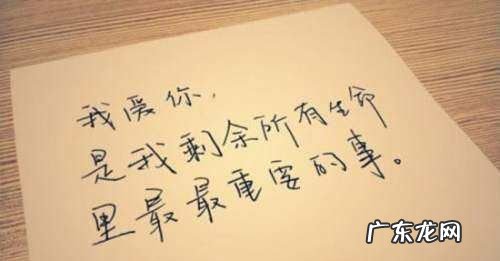 我爱你，
是我剩余所有生命
里最最重要的事。
广东龙网